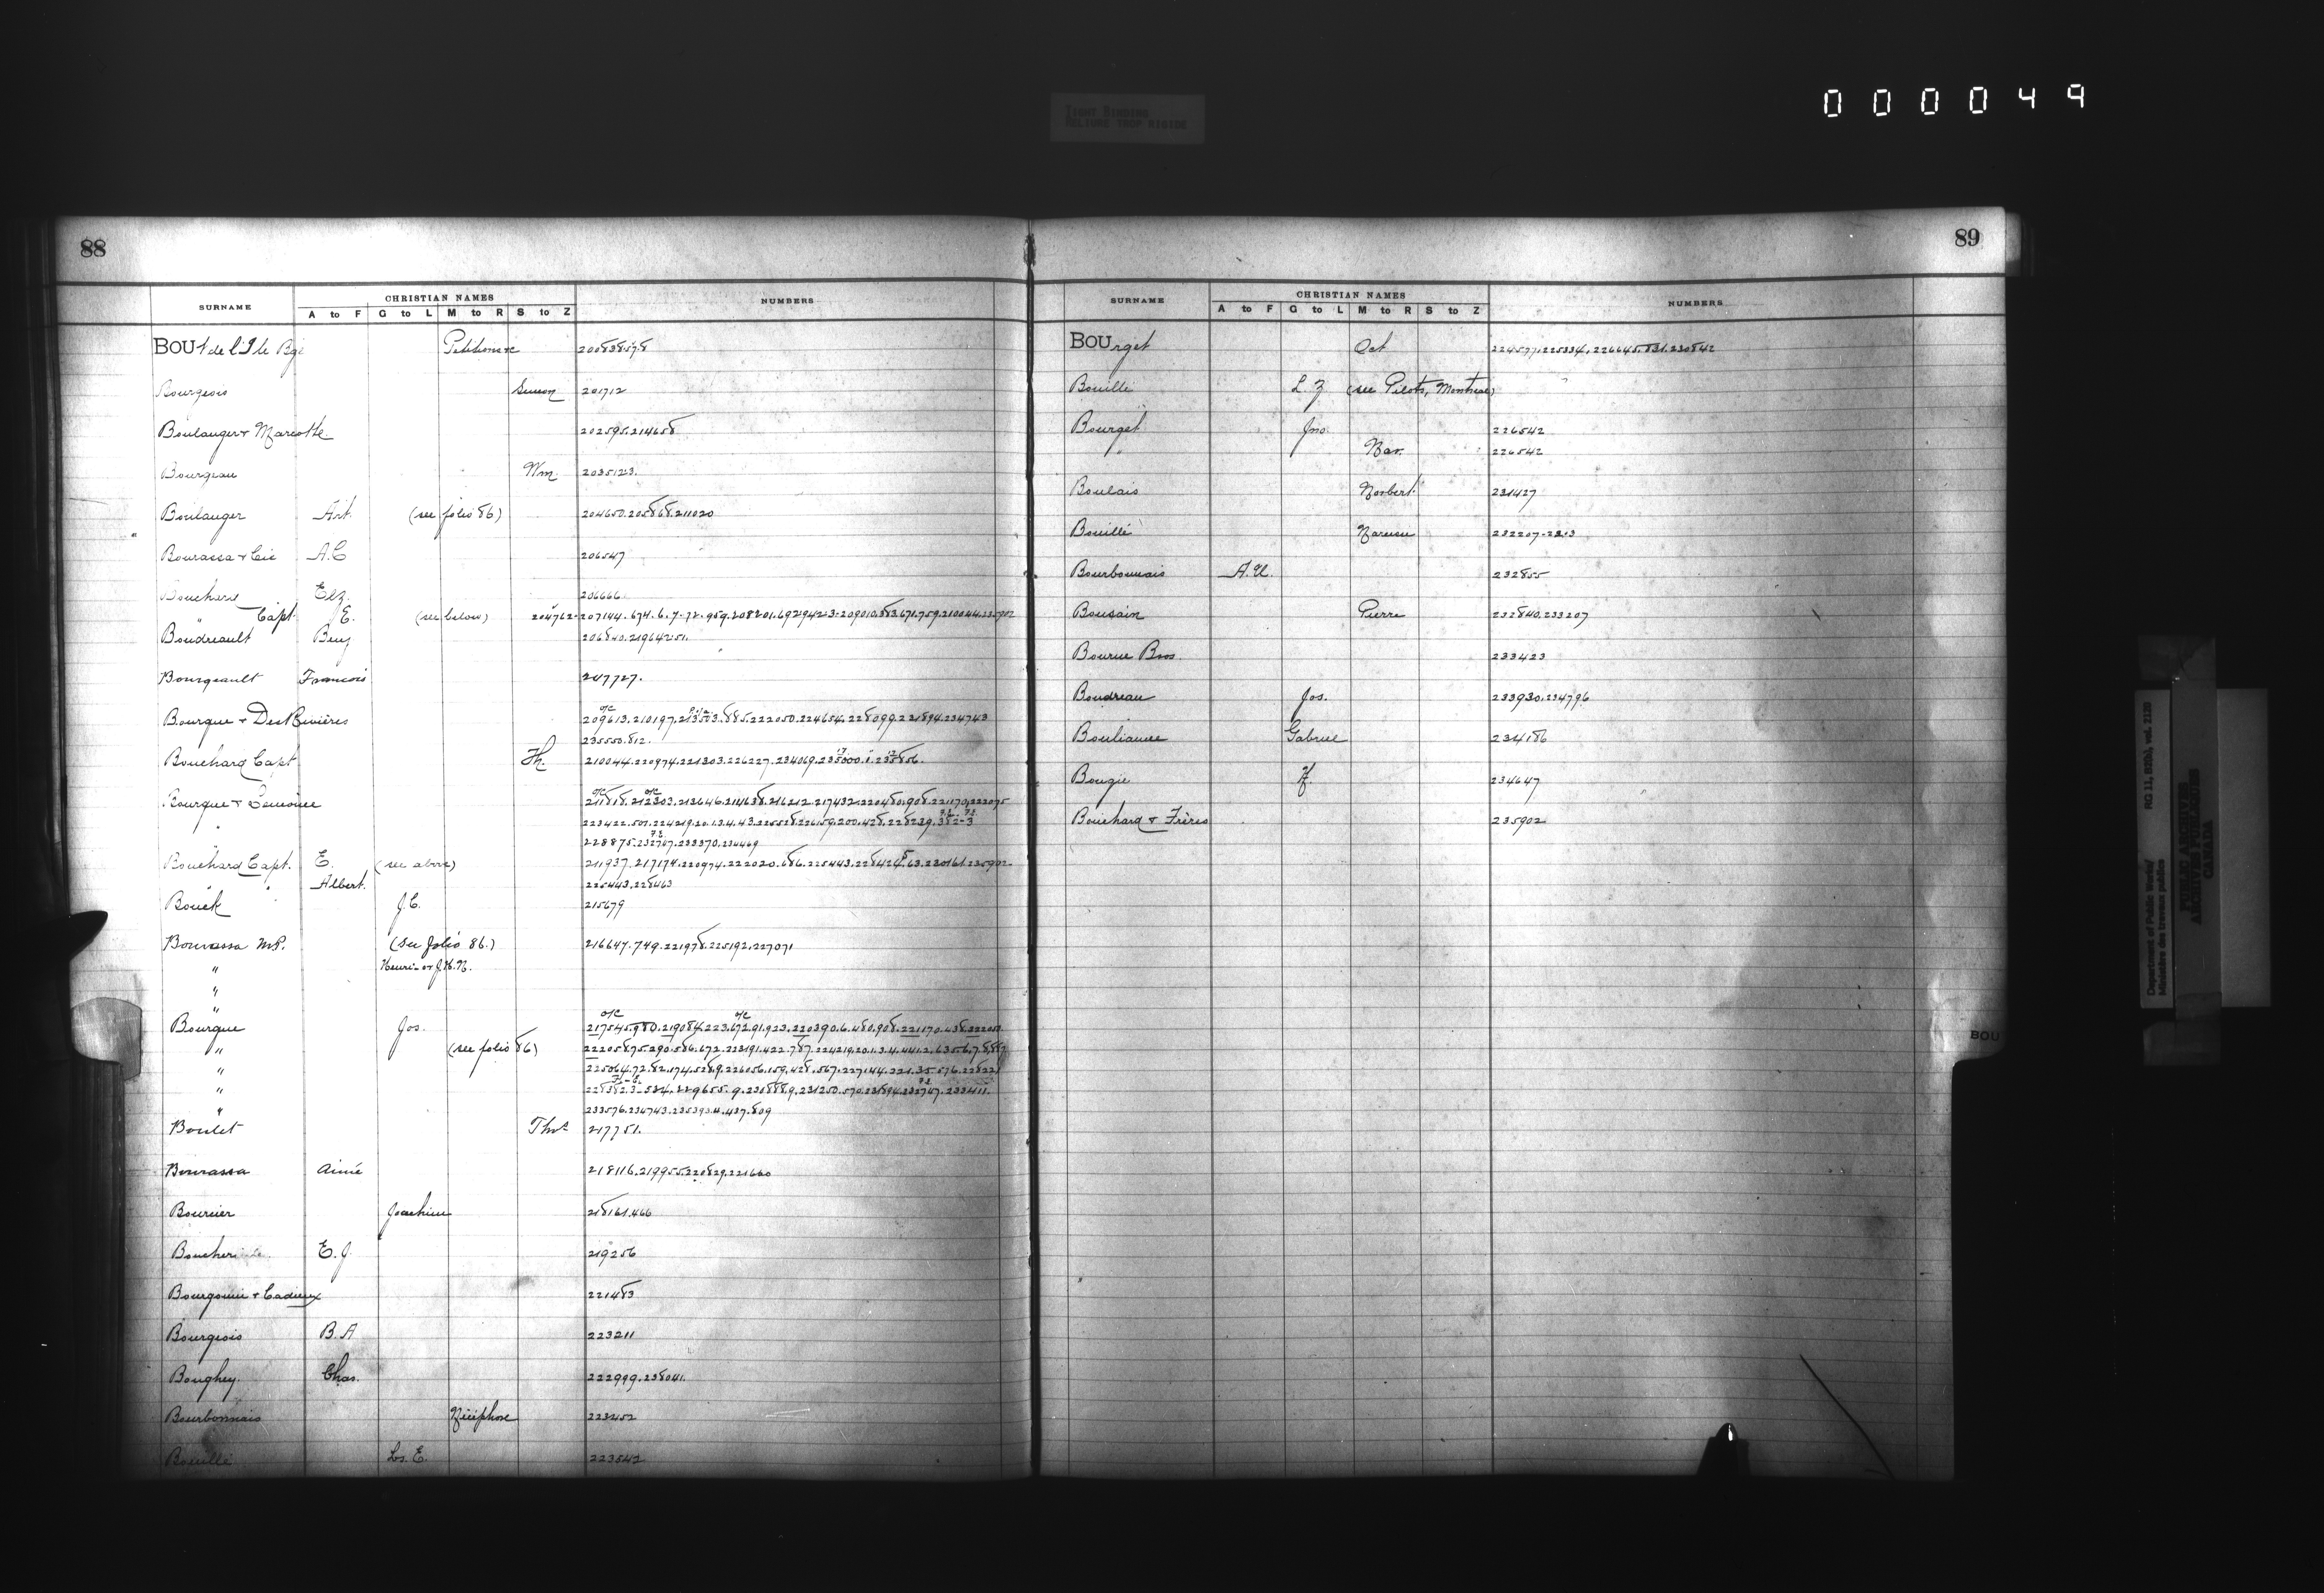 000049
TIGHT BINDING
RELIURE TROP RIGIDE
88
SURNAME CHRISTIAN NAMES NUMBERS
A to F G to L M to R S to Z
BOUt de l'Ile Bge Petition re 200838.57.8
Bourgeois Simeon 201712
Boulanger & Marcotte 202595.214658
Bourgeau Wm. 203512.3.
Boulanger Art. (see folio 86) 204650.205868.211020
Bourassa & Cie A.C 206547
Boucherie Elz. 206666
" Capt. E. (see below) 204762.207144.674.6.7.72.959.208201.692.942.3.209010.383.671.759.210044.235902
Boudreault Benj 206840.219642.51.
Bourgeault Francois 207727.
Bourque & DesRivières 209613.210197.213503.885.222050.224654.228099.231894.234743
235550.812.
Bouchard Capt Th. 210044.220974.221303.226227.234069.235000.1.235856.
Bourque & Lemoine 211818.212303.213646.214638.216212.217432.220480.908.221170.222075
223422.507.224219.20.1.3.4.43.225528.226159.200.428.228239.382-3
228875.232767.233370.234469
Bouchard Capt. E. (see above) 211937.217174.220974.222020.686.225443.228424.63.230161.235902
" " Albert. 225443.228463
Bouck J.C. 215679
Bourassa M.P. (see folio 86.) 216647.749.221978.225192.227071
" Henri- or J.H.N.
"
"
Bourque Jos. 217545.980.219084.223.672.91.923.220390.6.480.908.221170.438.222057
" (see folio 86) 222058.75.290.586.672.223191.422.787.224219.20.1.3.4.441.2.635.6.7.8.887
" 225064.72.82.174.528.9.226156.159.428.567.227144.221.35.576.228221
" 228382.3-534.229655.9.230888.9.231250.570.231894.232767.233411.
" 233576.234743.235393.4.437.809
Boulet Thos 217751.
Bourassa Aimé 218116.219955.220829.221660
Bourcier Joachim 218161.466
E.J. 219256
Bourgouin & Cadieux 221483
Bourgeois B.A 223211
Boughey. Chas. 222999.238041.
Bourbonnais Nicéphore 223452
Bouillé Ls. E. 223542
89
SURNAME CHRISTIAN NAMES NUMBERS
A to F G to L M to R S to Z
BOUrget Oct 224577.225334.226645.831.230842
Bouille L.Z (see Pilots, Montreal)
Bourget Jno 226542
" Nar. 226542
Boulais Norbert 231427
Bouillé Narcisse 232207-
Bourbonnais A.U. 232855
Bousain Pierre 232840.233207
Bourue Bros. 233423
Boudreau Jos. 233930.234796
Boulianne Gabriel 234186
Bougie 234647
Bouchard & Frères 235902
BOU
Department of Public Works/ RG 11, B2(b), vol. 2120
Ministère des travaux publics
PUBLIC ARCHIVES
ARCHIVES PUBLIQUES
CANADA